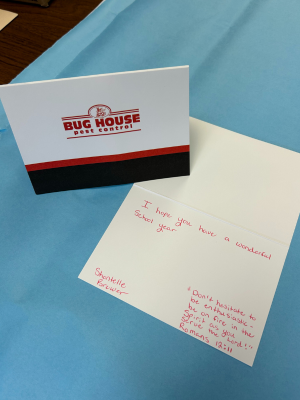 BUG HOUSE
pest control
I hope you have a wonderful
School year
Shantelle
Brewer
"Don't hesitate to
be enthusiastic -
be on fire in the
Spirit as you
serve the Lord!"
Romans 12:11